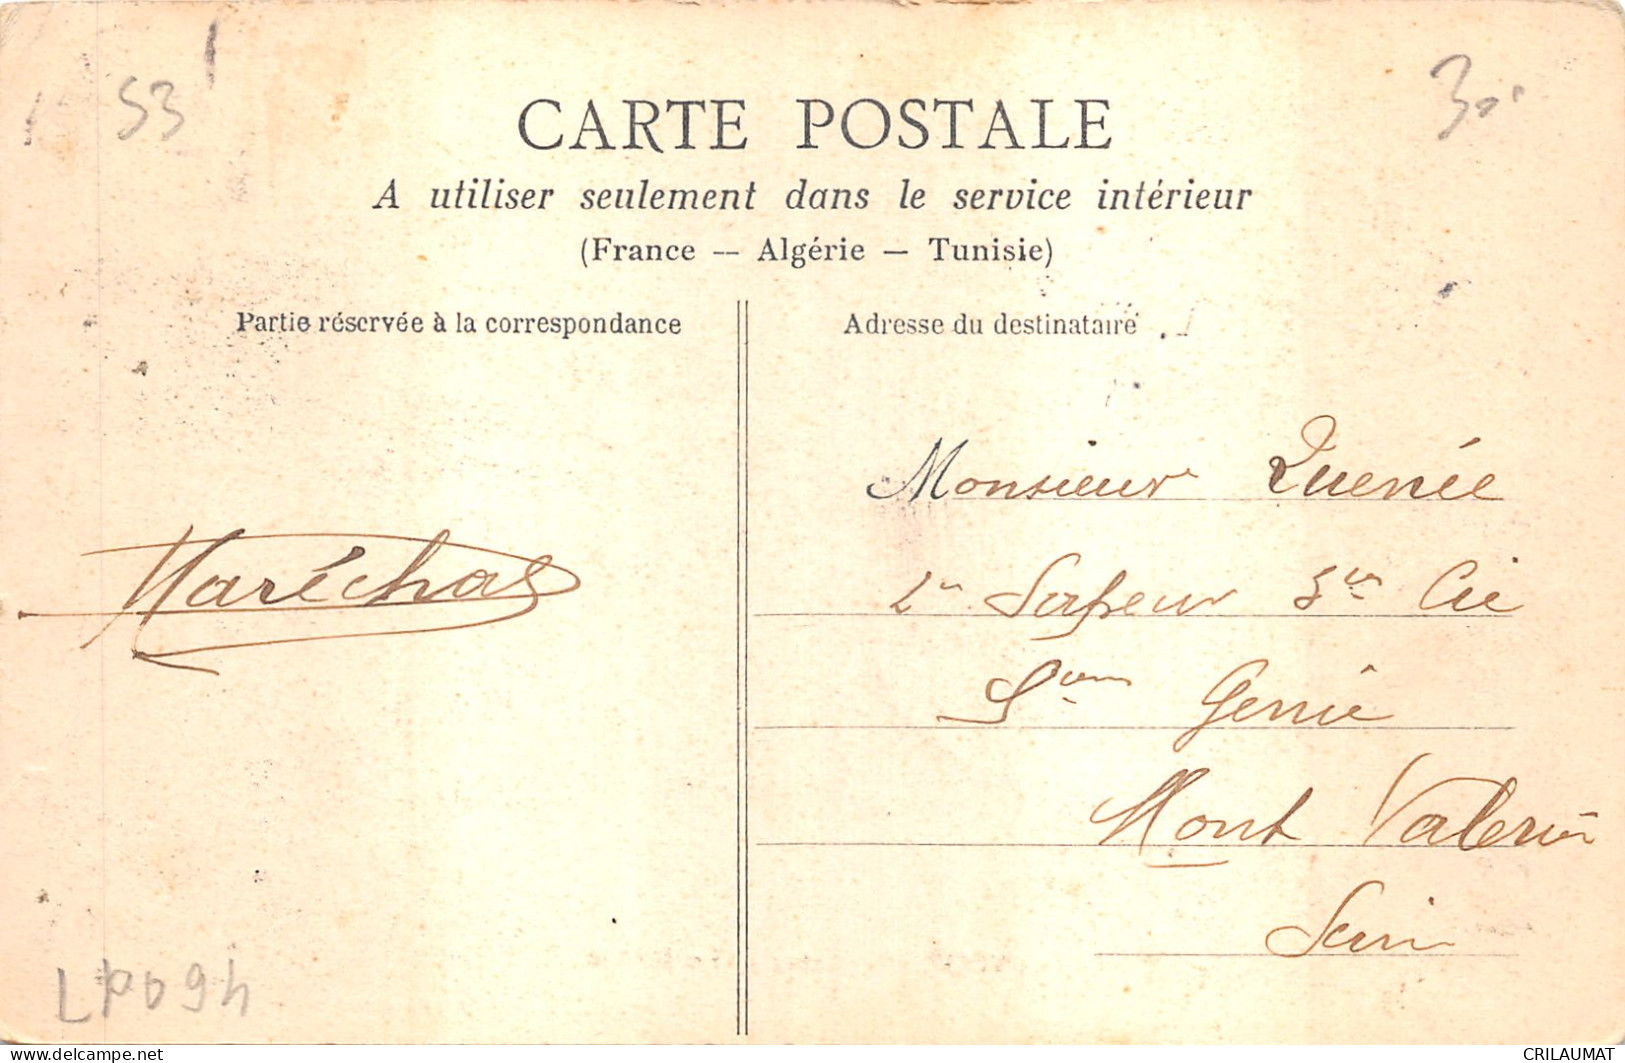 53
30
CARTE POSTALE
A utiliser seulement dans le service intérieur
(France -- Algérie — Tunisie)
Partie réservée à la correspondance
Adresse du destinataire
Monsieur Quenée
Sapeur Cie
Maréchal
5em Génie
Mont Valerien
Seine
CRILAUMAT